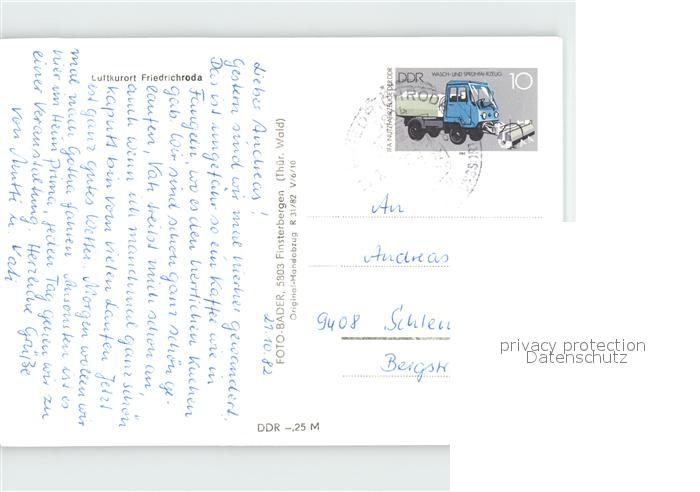 Luftkurort Friedrichroda
Lieber Andreas!
27.10.82
Gestern sind wir mal hierher gewandert.
Das ist ungefähr so ein Kaffee wie in
Füngeln, wo es den herrlichen Kuchen
gab. Wir sind schon ganz schön ge-
laufen, Vati treibt mich schon an,
auch wenn ich manchmal ganz schön
kaputt bin vom vielen Laufen. Jetzt
ist ganz gutes Wetter. Morgen wollen wir
mal nach Gotha fahren. Ansonsten ist es
hier im Heim prima, jeden Tag gehen wir zu
einer Veranstaltung. Herzliche Grüße
von Mutti u. Vati
FOTO-BADER, 5803 Finsterbergen (Thür. Wald)
Original-Handabzug R 31/82 V/6/10
DDR –,25 M
DDR
WASCH- UND SPRÜHFAHRZEUG
10
IFA-NUTZFAHRZEUGE DER DDR
An
Andreas
9408 Schlem
Bergstr
privacy protection
Datenschutz